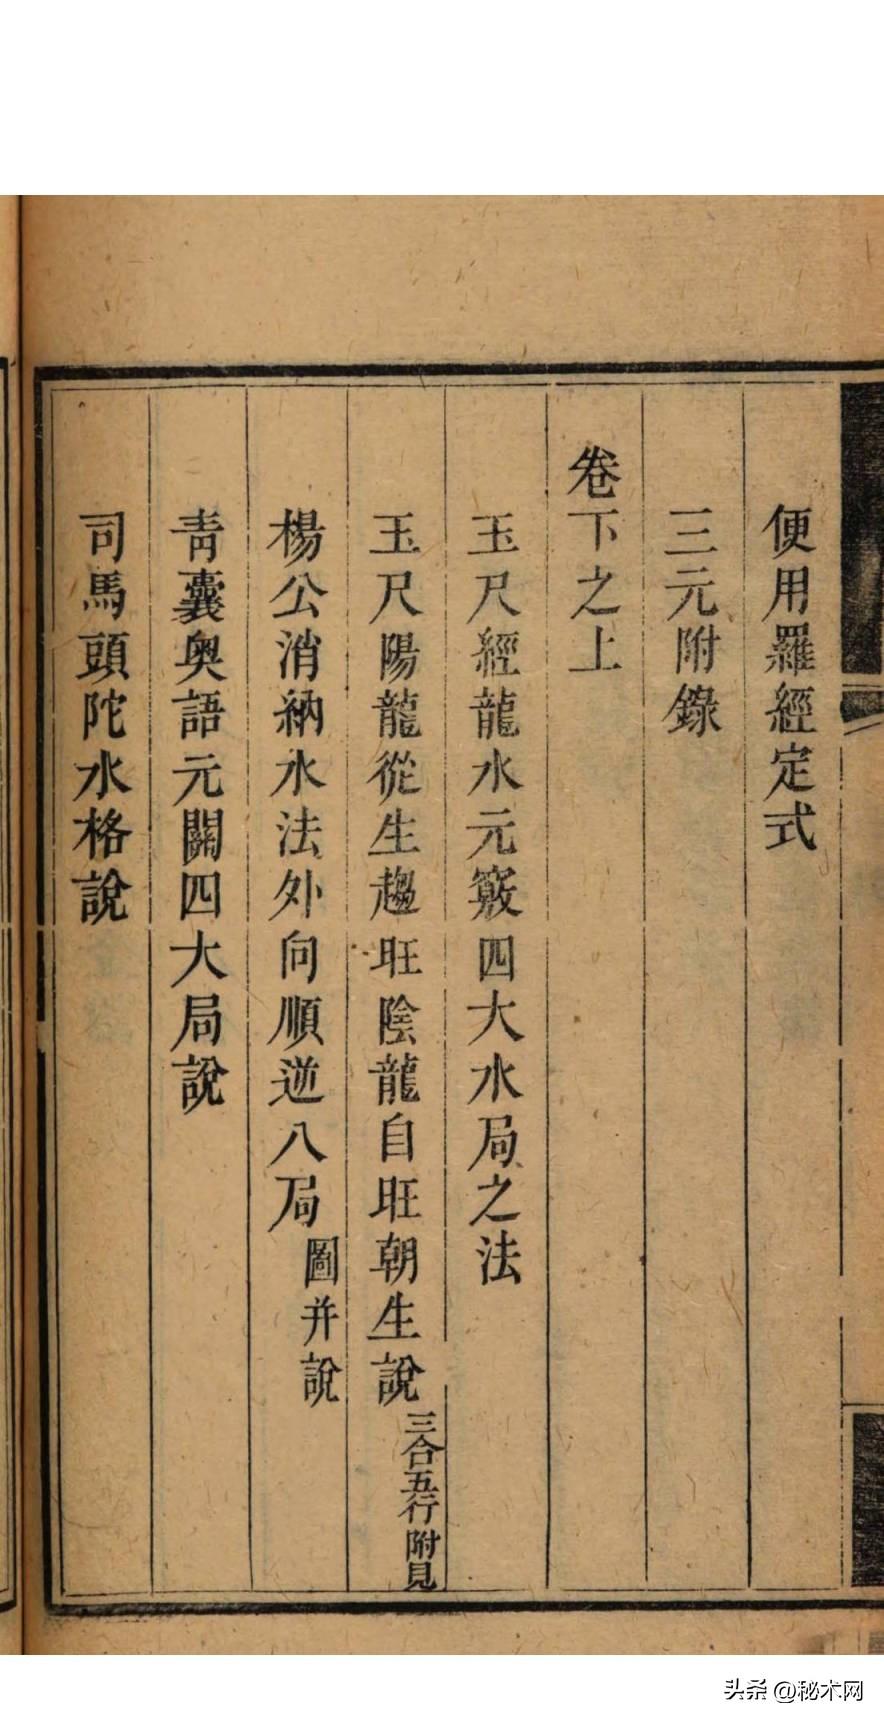 便用羅經定式
三元附錄
卷下之上
玉尺經龍水元竅四大水局之法
玉尺陽龍從生趨旺陰龍自旺朝生說三合五行附見
楊公消納水法外向順逆八局圖并說
青囊奥語元關四大局說
司馬頭陀水格說
头条 @秘术网